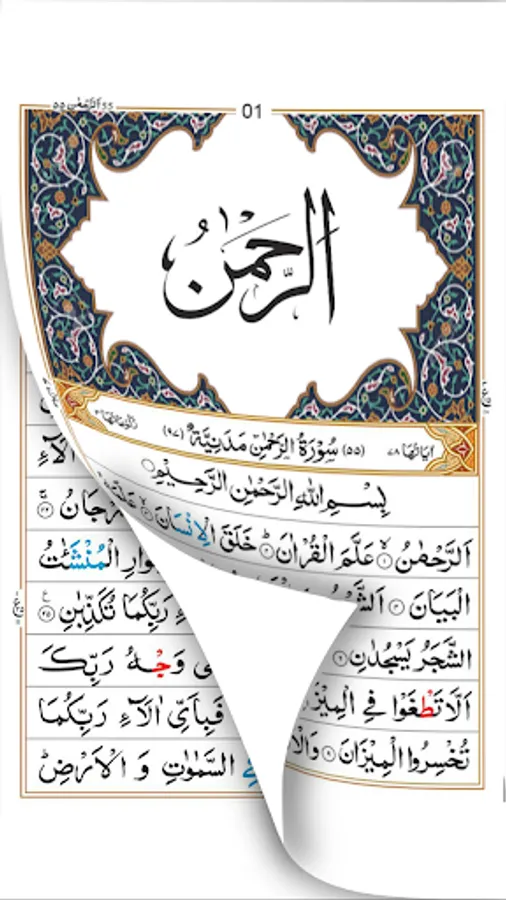 01
الرَّحْمٰن
اٰيَاتُهَا ٧٨ (٥٥) سُوْرَةُ الرَّحْمٰنِ مَدَنِيَّةٌ (٩٧) رُكُوْعَاتُهَا ٣
بِسْمِ اللهِ الرَّحْمٰنِ الرَّحِيْمِ
اَلرَّحْمٰنُ ۙ﴿١﴾ عَلَّمَ الْقُرْاٰنَ ؕ﴿٢﴾ خَلَقَ الْاِنْسَانَ ۙ﴿٣﴾
الْبَيَانَ ﴿٤﴾
الشَّجَرُ يَسْجُدٰنِ ﴿٦﴾
اَلَّا تَطْغَوْا فِي الْمِيْزَ
تُخْسِرُوا الْمِيْزَانَ ﴿٩﴾ وَالْا
اٰلَآءِ
رْجَانُ ﴿٢٢﴾
وَارِ الْمُنْشَـٰٔتُ
رَبِّكُمَا تُكَذِّبٰنِ ﴿٢٥﴾
وَجْهُ رَبِّكَ
فَبِاَيِّ اٰلَآءِ رَبِّكُمَا
السَّمٰوٰتِ وَ الْاَرْضِ ؕ